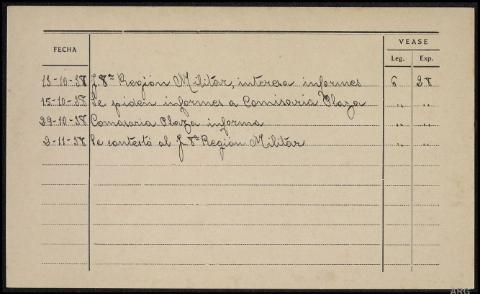 FECHA VEASE
Leg. Exp.
13-10-38 J. 8ª Región Militar, interesa informes 6 28
15-10-38 Se piden informes a Comisaria Plaza " "
29-10-38 Comisaria Plaza informa " "
2-11-38 Se contestó al J. 8ª Región Militar
ARG